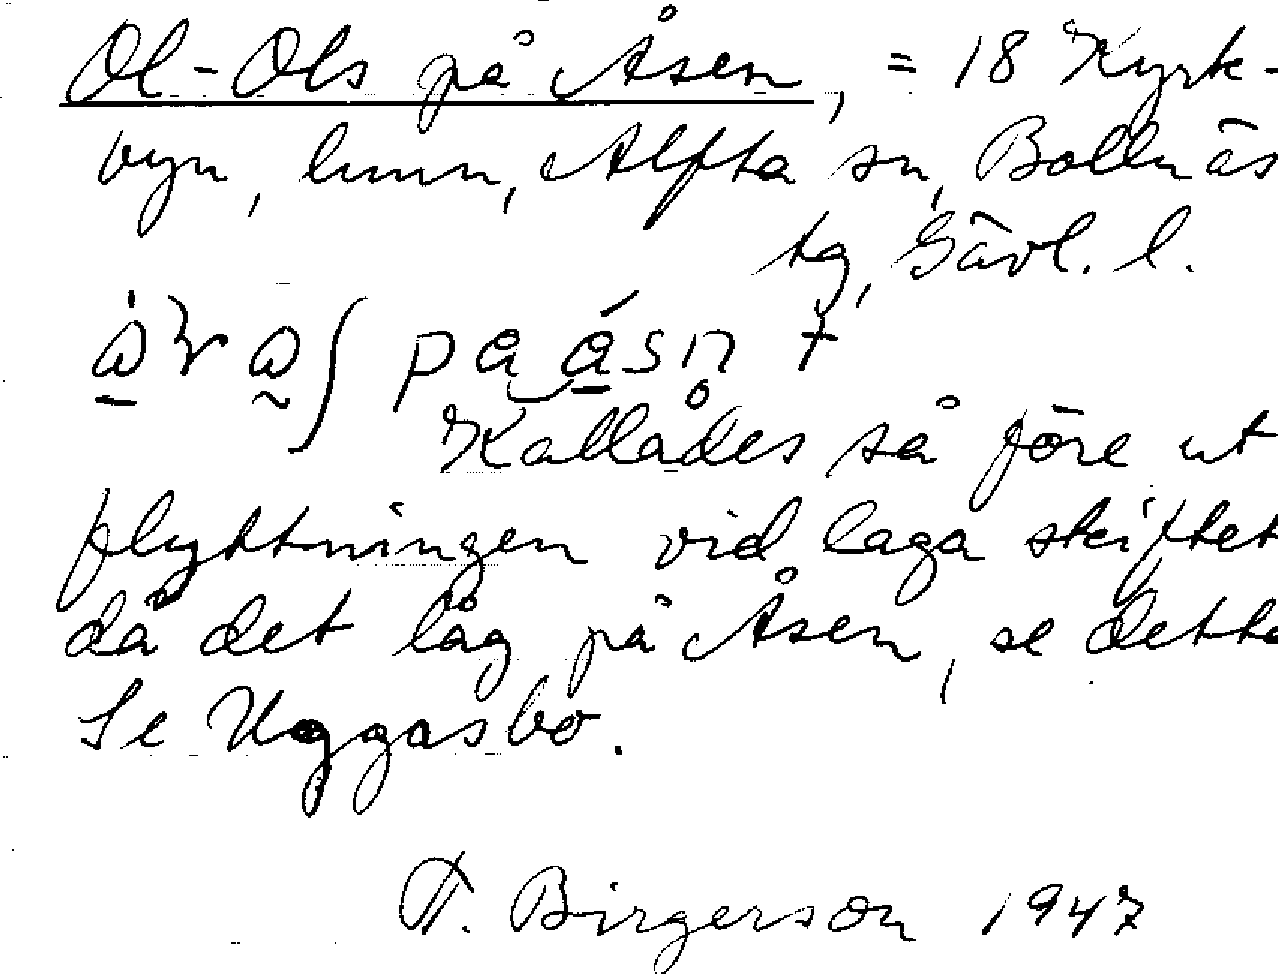 Ol-Ols på Åsen, = 18 Kyrk-
byn, hmn, Alfta sn, Bollnäs
tg, Gävl. l.
på åsn †
Kallades så före ut
flyttningen vid laga skiftet
då det låg på Åsen, se detta
Se Uggasbo.
T. Birgerson 1947